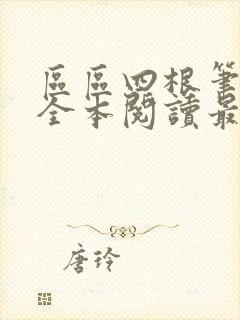 區區四根筆
全本閱讀最
唐玲